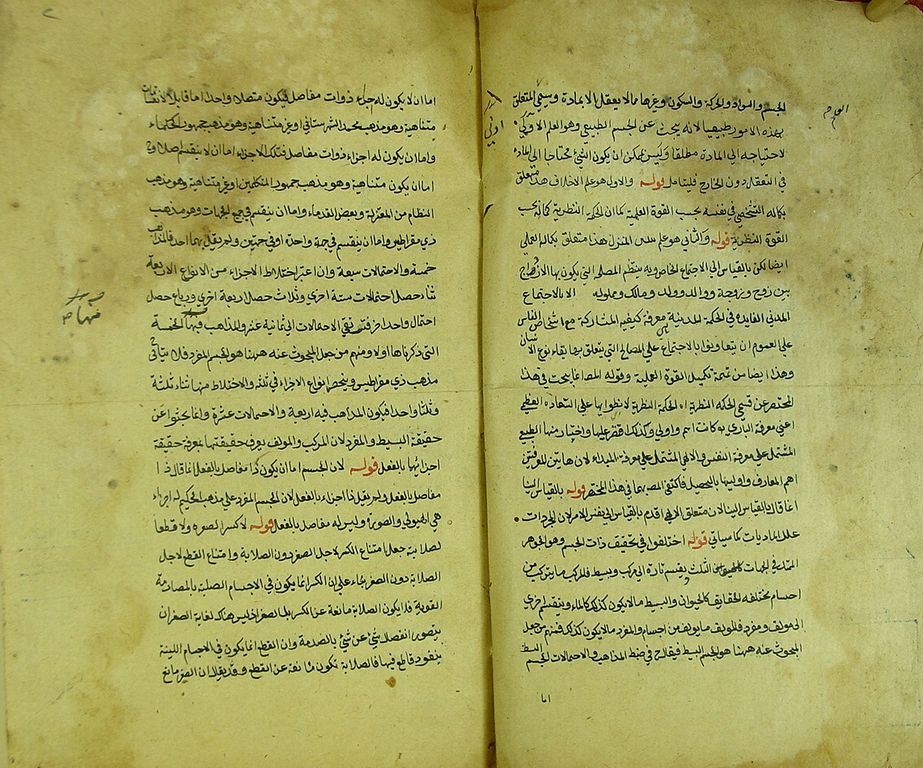 الجسم والمواد والحركة والسكون وغيرها مما لا يعقل الا بمادة ويسمى المتعلق
بهذه الامور طبيعيا لانه يبحث عن الجسم الطبيعي وهو العلم الاولى
لاحتياجه الى المادة مطلقا وليس يمكن ان يكون الشيئ محتاجا الى المادة
في التعقل دون الخارج فليتامل قوله والاول هو علم الاخلاق هذا متعلق
بكماله الشخصي في نفسه بحسب القوة العملية كما ان الحكمة النظرية كماله بحسب
القوة النظرية قوله والثاني هو علم المنزل هذا متعلق بكماله العملي
ايضا لكن بالقياس الى الاجتماع الخاص وبه ينتظم المصلحة التي يكون بها الازدواج
بين زوج وزوجة ووالد وولد ومالك ومملوك الا بالاجتماع
المدني الفايدة في الحكمة المدنية معرفة كيفية المشاركة مع اشخاص الناس
على العموم ان يتعاونوا بالاجتماع على المصالح التي يتعلق بها بقاء نوع الانسان
وهذا ايضا من تتمة تكميل القوة العملية وقوله المصـ انما يبحث في هذا
المختصر عن قسمي الحكمة النظرية اه الحكمة النظرية لانطوائها على السعادة العظمى
اعني معرفة الباري به كانت اهم واولى وكذلك قصر عليها واختار منها الطبيعي
المشتمل على معرفة النفس والالهي المشتمل على معرفة المبداء لان هاتين المعرفتين
اهم المعارف واوليها بالتحصيل فاكتفى المصـ بهما في هذا المختصر قوله بالقياس الينا
انما قال بالقياس الينا لان متعلق الالهي اقدم بالقياس الى نفس الامر لان المجردات
علل الماديات كما سياتي قوله اختلفوا في تحقيق ذات الجسم وهو الجوهر
الممتد في الجهات الثلث يقسم تارة الى مركب وبسيط فالمركب ما يتركب من
اجسام مختلفة الحقايق كالحيوان والبسيط ما لا يكون كذلك كالماء وينقسم اخرى
الى مولف ومفرد فالمولف ما يولف من اجسام والمفرد ما لا يكون كذلك فمنهم من جعل
المبحوث عنه ههنا هو الجسم البسيط فيقال في ضبط المذاهب والاحتمالات الجسم البسيط
اما
اما ان لا يكون له اجزاء ذوات مفاصل فيكون متصلا واحدا اما قابلا لانقسامات
متناهية وهو مذهب محمد الشهرستاني او غير متناهية وهو مذهب جمهور الحكماء
واما ان يكون له اجزاء ذوات مفاصل فتلك الاجزاء اما ان لا ينقسم اصلا و
اما ان يكون متناهية وهو مذهب جمهور المتكلمين او غير متناهية وهو مذهب
النظام من المعتزلة وبعض القدماء واما ان ينقسم في جميع الجهات وهو مذهب
ذي مقراطيس واما ان ينقسم في جهة واحدة او في جهتين ولم يقل بهما احد فالمذاهب
خمسة والاحتمالات سبعة وان اعتبر اختلاط الاجزاء من الانواع الاربعة
ثناء حصل احتمالات ستة اخرى وثلاث حصل اربعة اخرى ورباع حصل
احتمال واحد اخر فترتقي الاحتمالات الى ثمانية عشر والمذاهب فيها الخمسة
التي ذكرناها اولا ومنهم من جعل المبحوث عنه ههنا هو الجسم المفرد فلا يتاتى
مذهب ذي مقراطيس وينحصر انواع الاجزاء في ثلثة والاختلاط منها ثناء ثلثة
وثلثا واحدا فيكون المذاهب فيه اربعة والاحتمالات عشرة وانما بحثوا عن
حقيقة البسيط والمفرد لان المركب والمولف يعرف حقيقتها بمعرفة حقيقة
اجزائهما بالفعل قوله لان الجسم اما ان يكون ذا مفاصل بالفعل انما قال ذا
مفاصل بالفعل ولم يقل ذا اجزاء بالفعل لان الجسم المفرد على مذهب الحكيم له اجزاء
هي الهيولى والصورة وليس له مفاصل بالفعل قوله لا كسرا لصغره ولا قطعا
لصلابة جعل امتناع الكسر لاجل الصغر دون الصلابة وامتناع القطع لاجل
الصلابة دون الصغر بناء على ان الكسر انما يكون في الاجسام الصلبة بالمصادمة
القوية فلا يكون الصلابة مانعة عن الكسر بل الصغر اذ ليس هناك لغاية الصغر ان
يتصور انفصال شيئ عن شيئ بالصدمة وان القطع انما يكون في الاجسام اللينة
بنفوذ قاطع فيها فالصلابة تكون مانعة عن القطع وقد يقال ان الصغر مانع